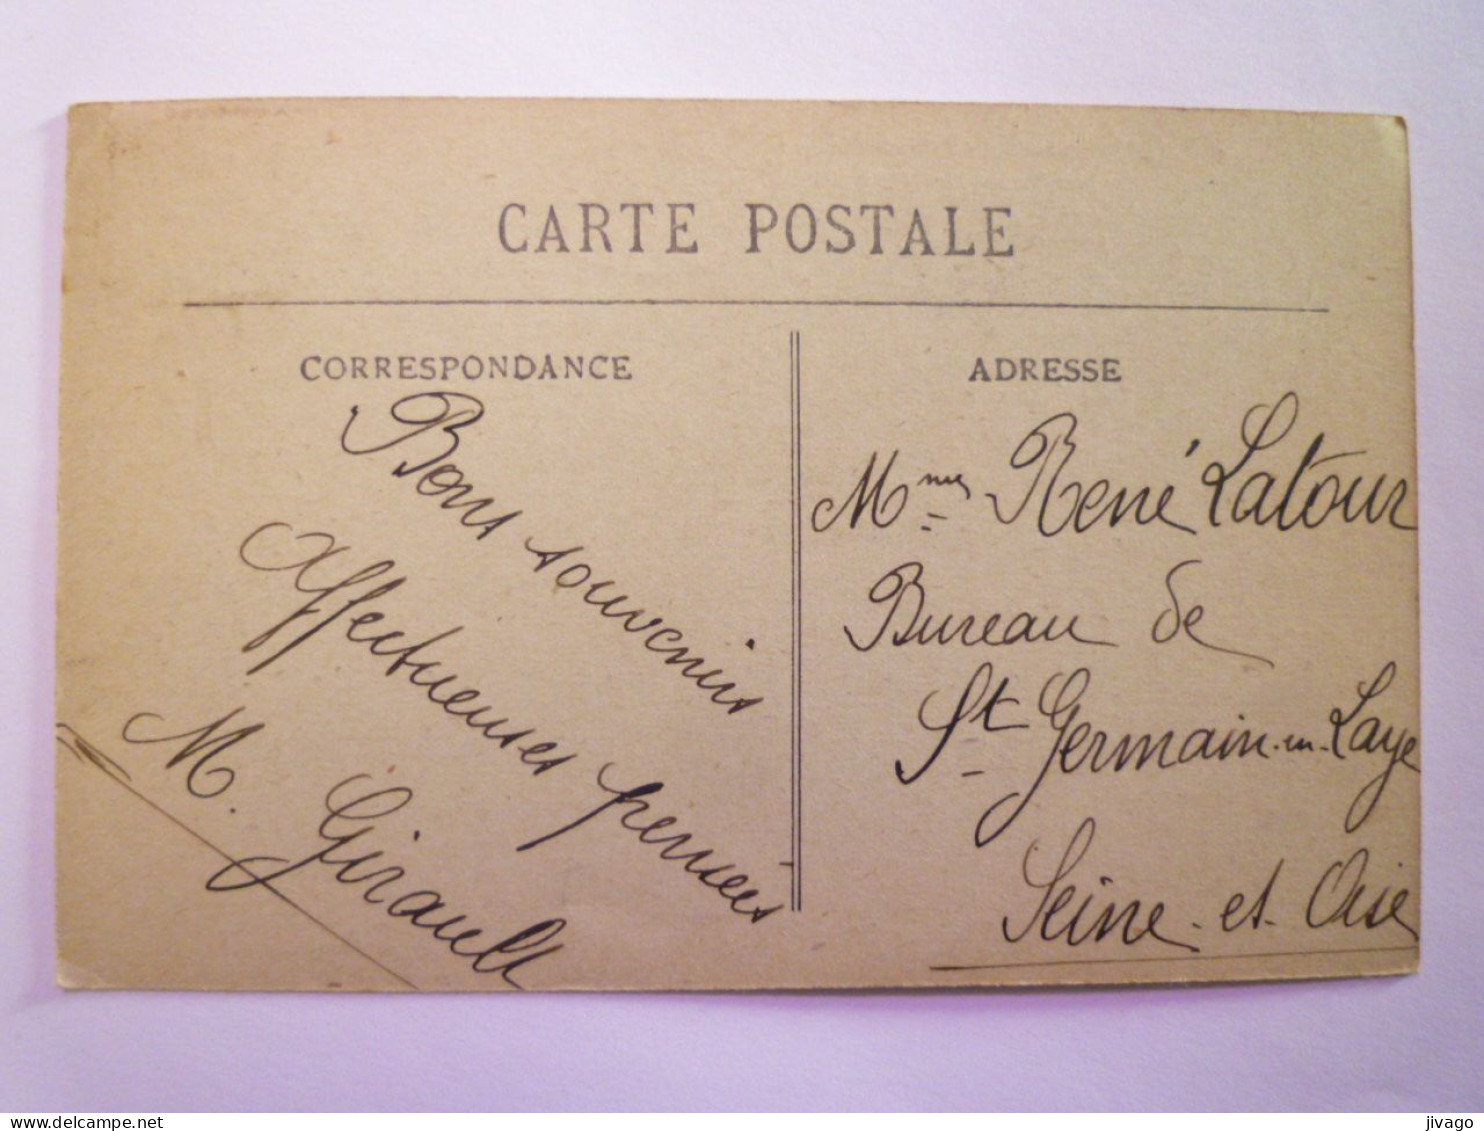 CARTE POSTALE
CORRESPONDANCE
Bons souvenirs
Affectueuses pensées
M. Girault
ADRESSE
Mme René Latour
Bureau de
St Germain-en-Laye
Seine-et-Oise
jivago